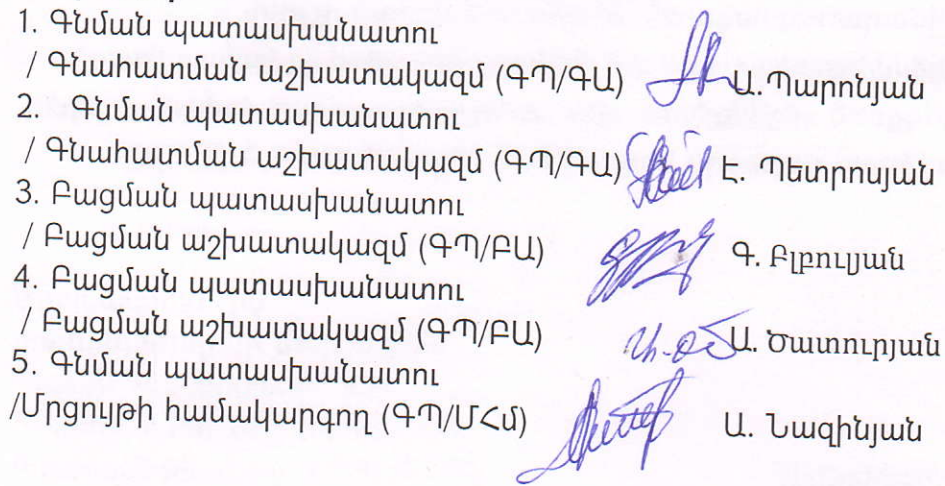 1. Գնման պատասխանատու
/ Գնահատման աշխատակազմ (ԳՊ/ԳԱ) Ա. Պարոնյան
2. Գնման պատասխանատու
/ Գնահատման աշխատակազմ (ԳՊ/ԳԱ) Է. Պետրոսյան
3. Բացման պատասխանատու
/ Բացման աշխատակազմ (ԳՊ/ԲԱ) Գ. Բլբուլյան
4. Բացման պատասխանատու
/ Բացման աշխատակազմ (ԳՊ/ԲԱ) Ա. Ծատուրյան
5. Գնման պատասխանատու
/Մրցույթի համակարգող (ԳՊ/ՄՀմ) Ա. Նազինյան